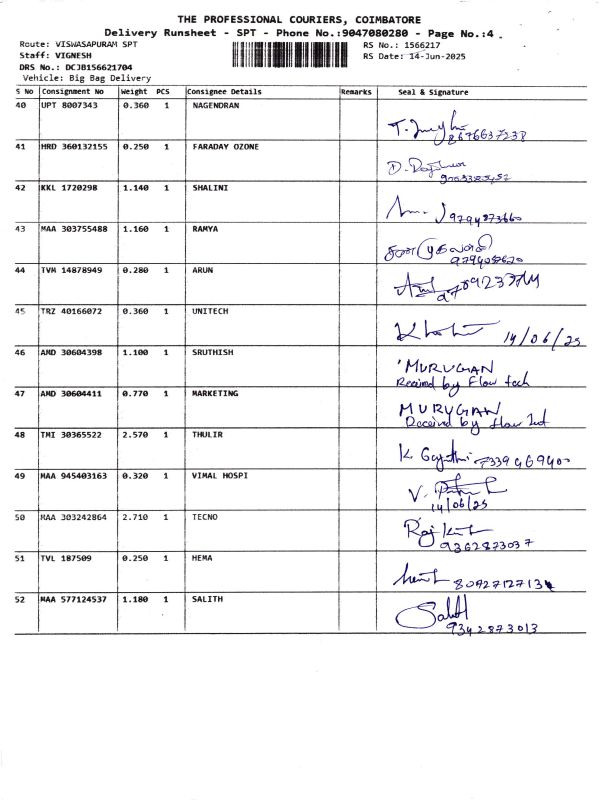 THE PROFESSIONAL COURIERS, COIMBATORE
Delivery Runsheet - SPT - Phone No.:9047080280 - Page No.:4
Route: VISWASAPURAM SPT RS No.: 1566217
Staff: VIGNESH RS Date: 14-Jun-2025
DRS No.: DCJB156621704
Vehicle: Big Bag Delivery
S No Consignment No Weight PCS Consignee Details Remarks Seal & Signature
40 UPT 8007343 0.360 1 NAGENDRAN
8676637238
41 HRD 360132155 0.250 1 FARADAY OZONE
42 KKL 1720298 1.140 1 SHALINI
9794873660
43 MAA 303755488 1.160 1 RAMYA
44 TVM 14878949 0.280 1 ARUN
45 TRZ 40166072 0.360 1 UNITECH
14/06/25
46 AMD 30604398 1.100 1 SRUTHISH
MURUGAN
Received by Flow tech
47 AMD 30604411 0.770 1 MARKETING
MURUGAN
Received by flow
48 TMI 30365522 2.570 1 THULIR
49 MAA 945403163 0.320 1 VIMAL HOSPI
V.
14/06/25
50 MAA 303242864 2.710 1 TECNO
9362873037
51 TVL 187509 0.250 1 HEMA
52 MAA 577124537 1.180 1 SALITH
Salith
9342873013